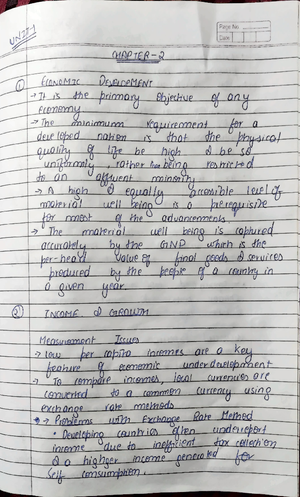 Page No.
Date
UNIT-1
CHAPTER-2
① ECONOMIC DEVELOPMENT
→ It is the primary objective of any
economy
→ The minimum requirement for a
developed nation is that the physical
quality of life be high & be so
uniformly, rather than being restricted
to an affluent minority
→ A high & equally accessible level of
material well being is a prerequisite
for most of the advancements
→ The material well being is captured
accurately by the GNP which is the
per-head value of final goods & services
produced by the people of a country in
a given year.
② INCOME & GROWTH
Measurement Issues
→ Low per capita incomes are a key
feature of economic underdevelopment
→ To compare incomes, local currencies are
converted to a common currency using
exchange rate methods
→ Problems with Exchange Rate Method
• Developing countries often underreport
income due to inefficient tax collection
& a higher income generated for
self consumption.